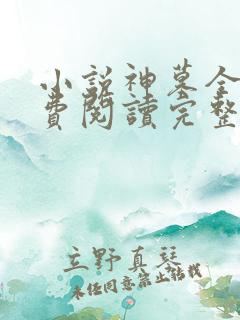 小説神墓全
費閱讀完整
立野真琴
未经同意禁止转载